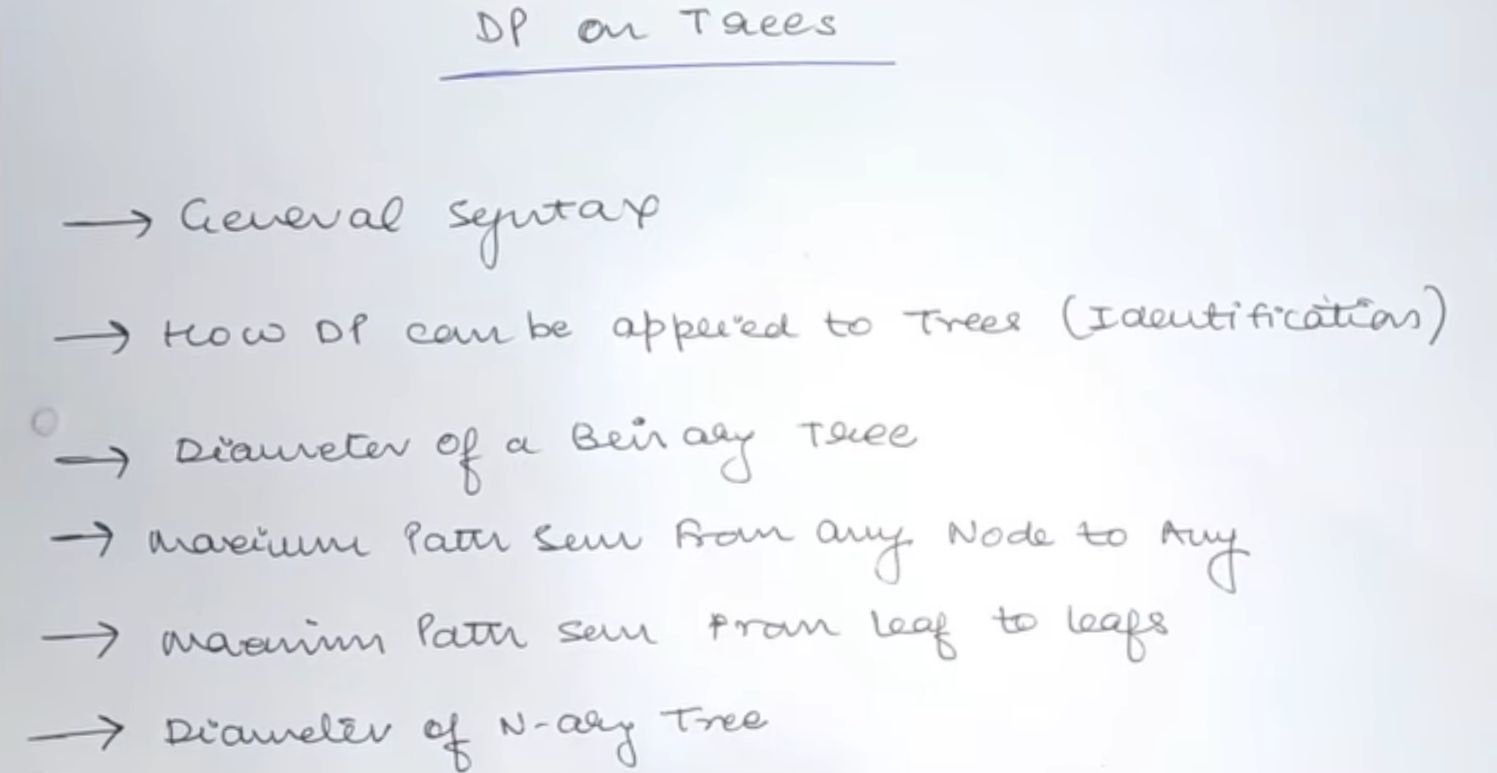 DP on Trees
→ General Syntax
→ How DP can be applied to Trees (Identification)
→ Diameter of a Binary Tree
→ Maximum Path Sum From any Node to Any
→ Maximum Path Sum From leaf to leafs
→ Diameter of N-ary Tree